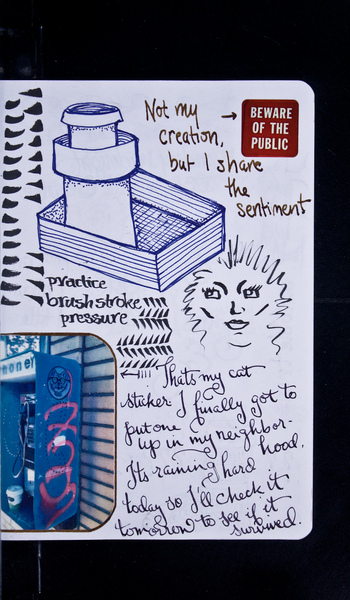 Not my
creation,
but I share
the
sentiment
BEWARE
OF THE
PUBLIC
practice
brushstroke
pressure
Thats my cat
sticker. I finally got to
put one
up in my neighbor-
hood.
Its raining hard
today so I'll check it
tomorrow to see if it
survived.